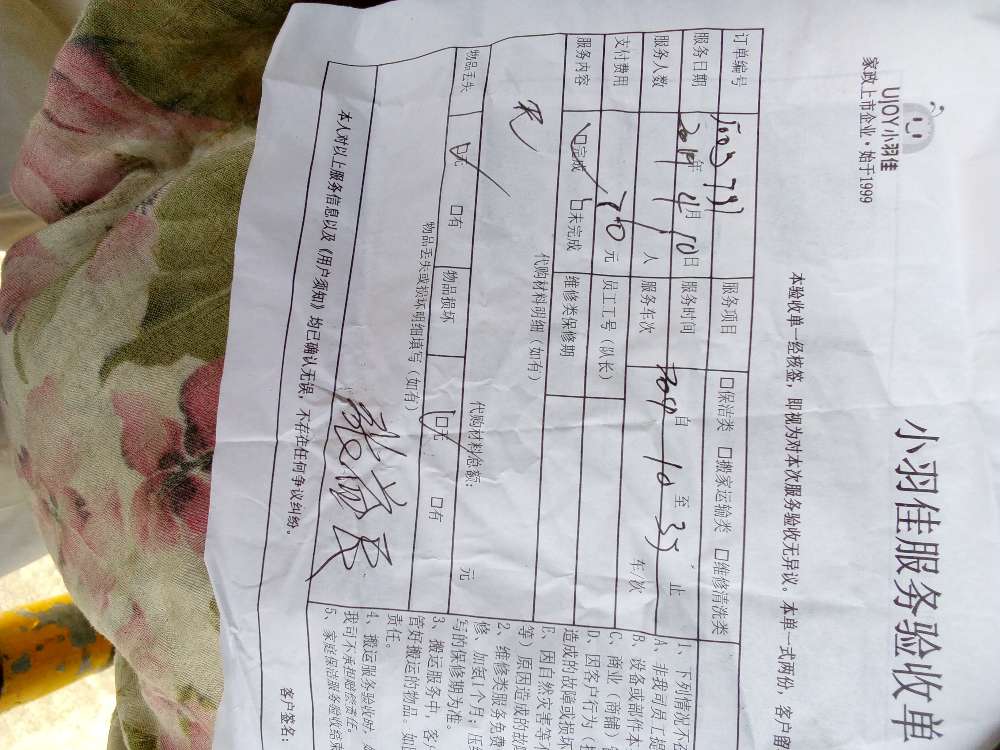 UJOY小羽佳
家政上市企业·始于1999
小羽佳服务验收单
本验收单一经核签，即视为对本次服务验收无异议。本单一式两份，客户留
订单编号 服务项目 □保洁类 □搬家运输类 □维修清洗类
服务日期 年 4月10日 服务时间 自 至 止
服务人数 1人 服务车次 车/次
支付费用 元 员工工号（队长）
服务内容 □完成 □未完成 维修类保修期
代购材料明细（如有）
无
代购材料总额： 元
物品丢失 □无 □有 物品损坏 □无 □有
物品丢失或损坏明细填写（如有）
本人对以上服务信息以及《用户须知》均已确认无误，不存在任何争议纠纷。
1、下列情况不
A、非我司员工提
B、设备或部件本
C、商业（商铺）
D、因客户行为（
造成的故障或损坏
E、因自然灾害等不
等）原因造成的故
2、维修类服务免费
修，加氨1个月；压
写的保修期为准。
3、搬运服务中，客
管好搬运的物品。如
责任。
4、搬运服务验收时，
我司不承担赔偿责任。
5、家庭保洁服务验收结束
客户签名：